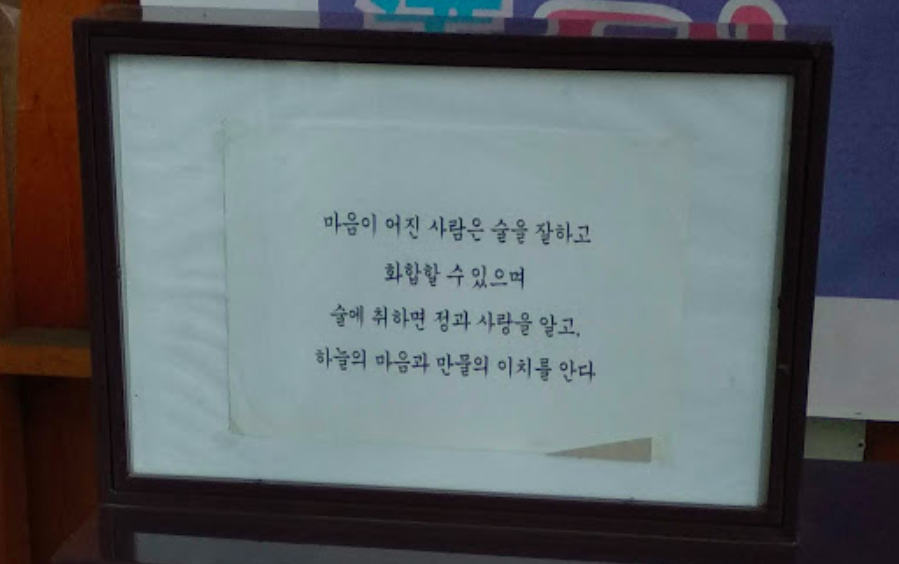 마음이 어진 사람은 술을 잘하고
화합할 수 있으며
술에 취하면 정과 사랑을 알고,
하늘의 마음과 만물의 이치를 안다